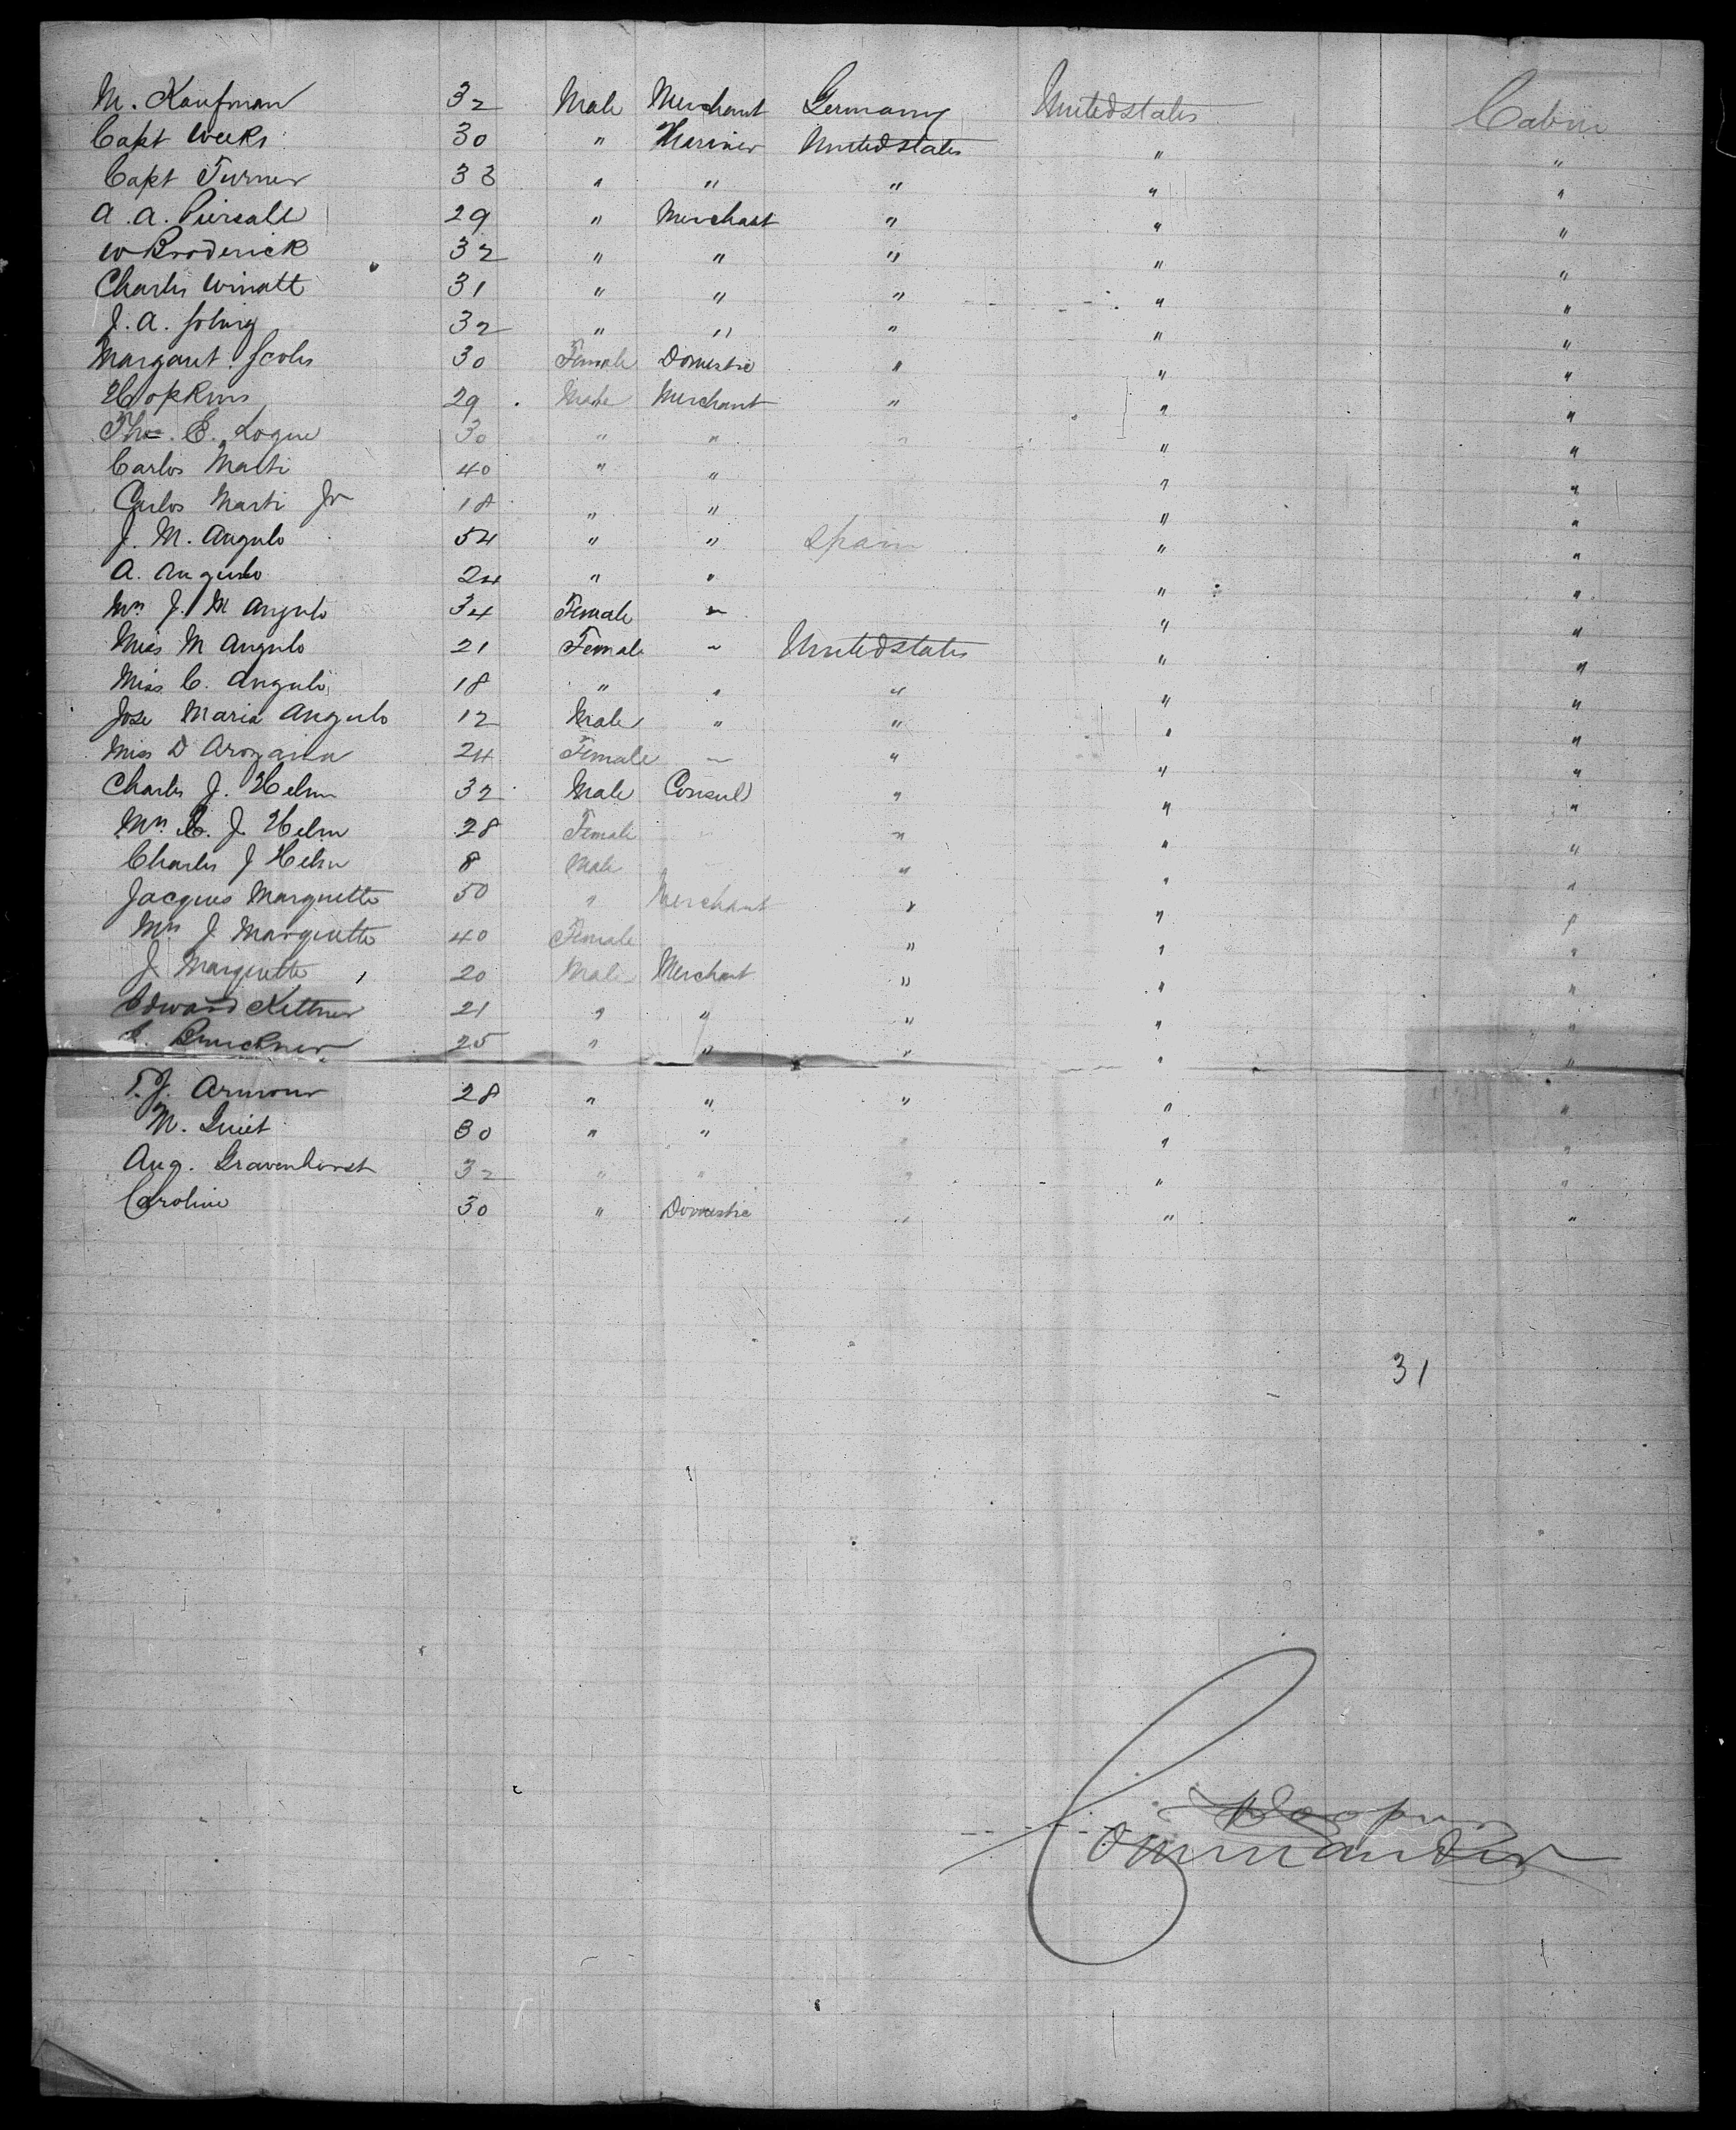 M. Kaufman 32 Male Merchant Germany United states Cabin
Capt Weeks 30 " Mariner United states " "
Capt Turner 33 " " " " "
A. A. Piersall 29 " Merchant " " "
W Broderick 32 " " " " "
Charles Winatt 31 " " " " "
J. A. 32 " " " " "
Margaret Scoles 30 Female Domestic " " "
Hopkins 29 Male Merchant " " "
Thos. E. Logue 30 " " " " "
Carlos Malti 40 " " " "
Carlos Marti Jr 18 " " " "
J. M. Angulo 54 " " Spain " "
A. Angulo 24 " " " "
Mrs J. M Angulo 34 Female " " "
Miss M Angulo 21 Female " United states " "
Miss C. Angulo 18 " " " " "
Jose Maria Angulo 12 Male " " " "
Miss D 24 Female " " " "
Charles J. Helm 32 Male Consul " " "
Mrs C. J. Helm 28 Female " " "
Charles J Helm 8 Male " " "
Jacques Marquette 50 " Merchant " " "
Mrs J Marquette 40 Female " " "
J Marquette 20 Male Merchant " " "
Edward Kettner 21 " " " " "
Bruckner 25 " " " " "
T. J. Armour 28 " " " " "
M. 30 " " " " "
Aug. Gravenhorst 32 " " " " "
Caroline 30 " Domestic " " "
31
Commander